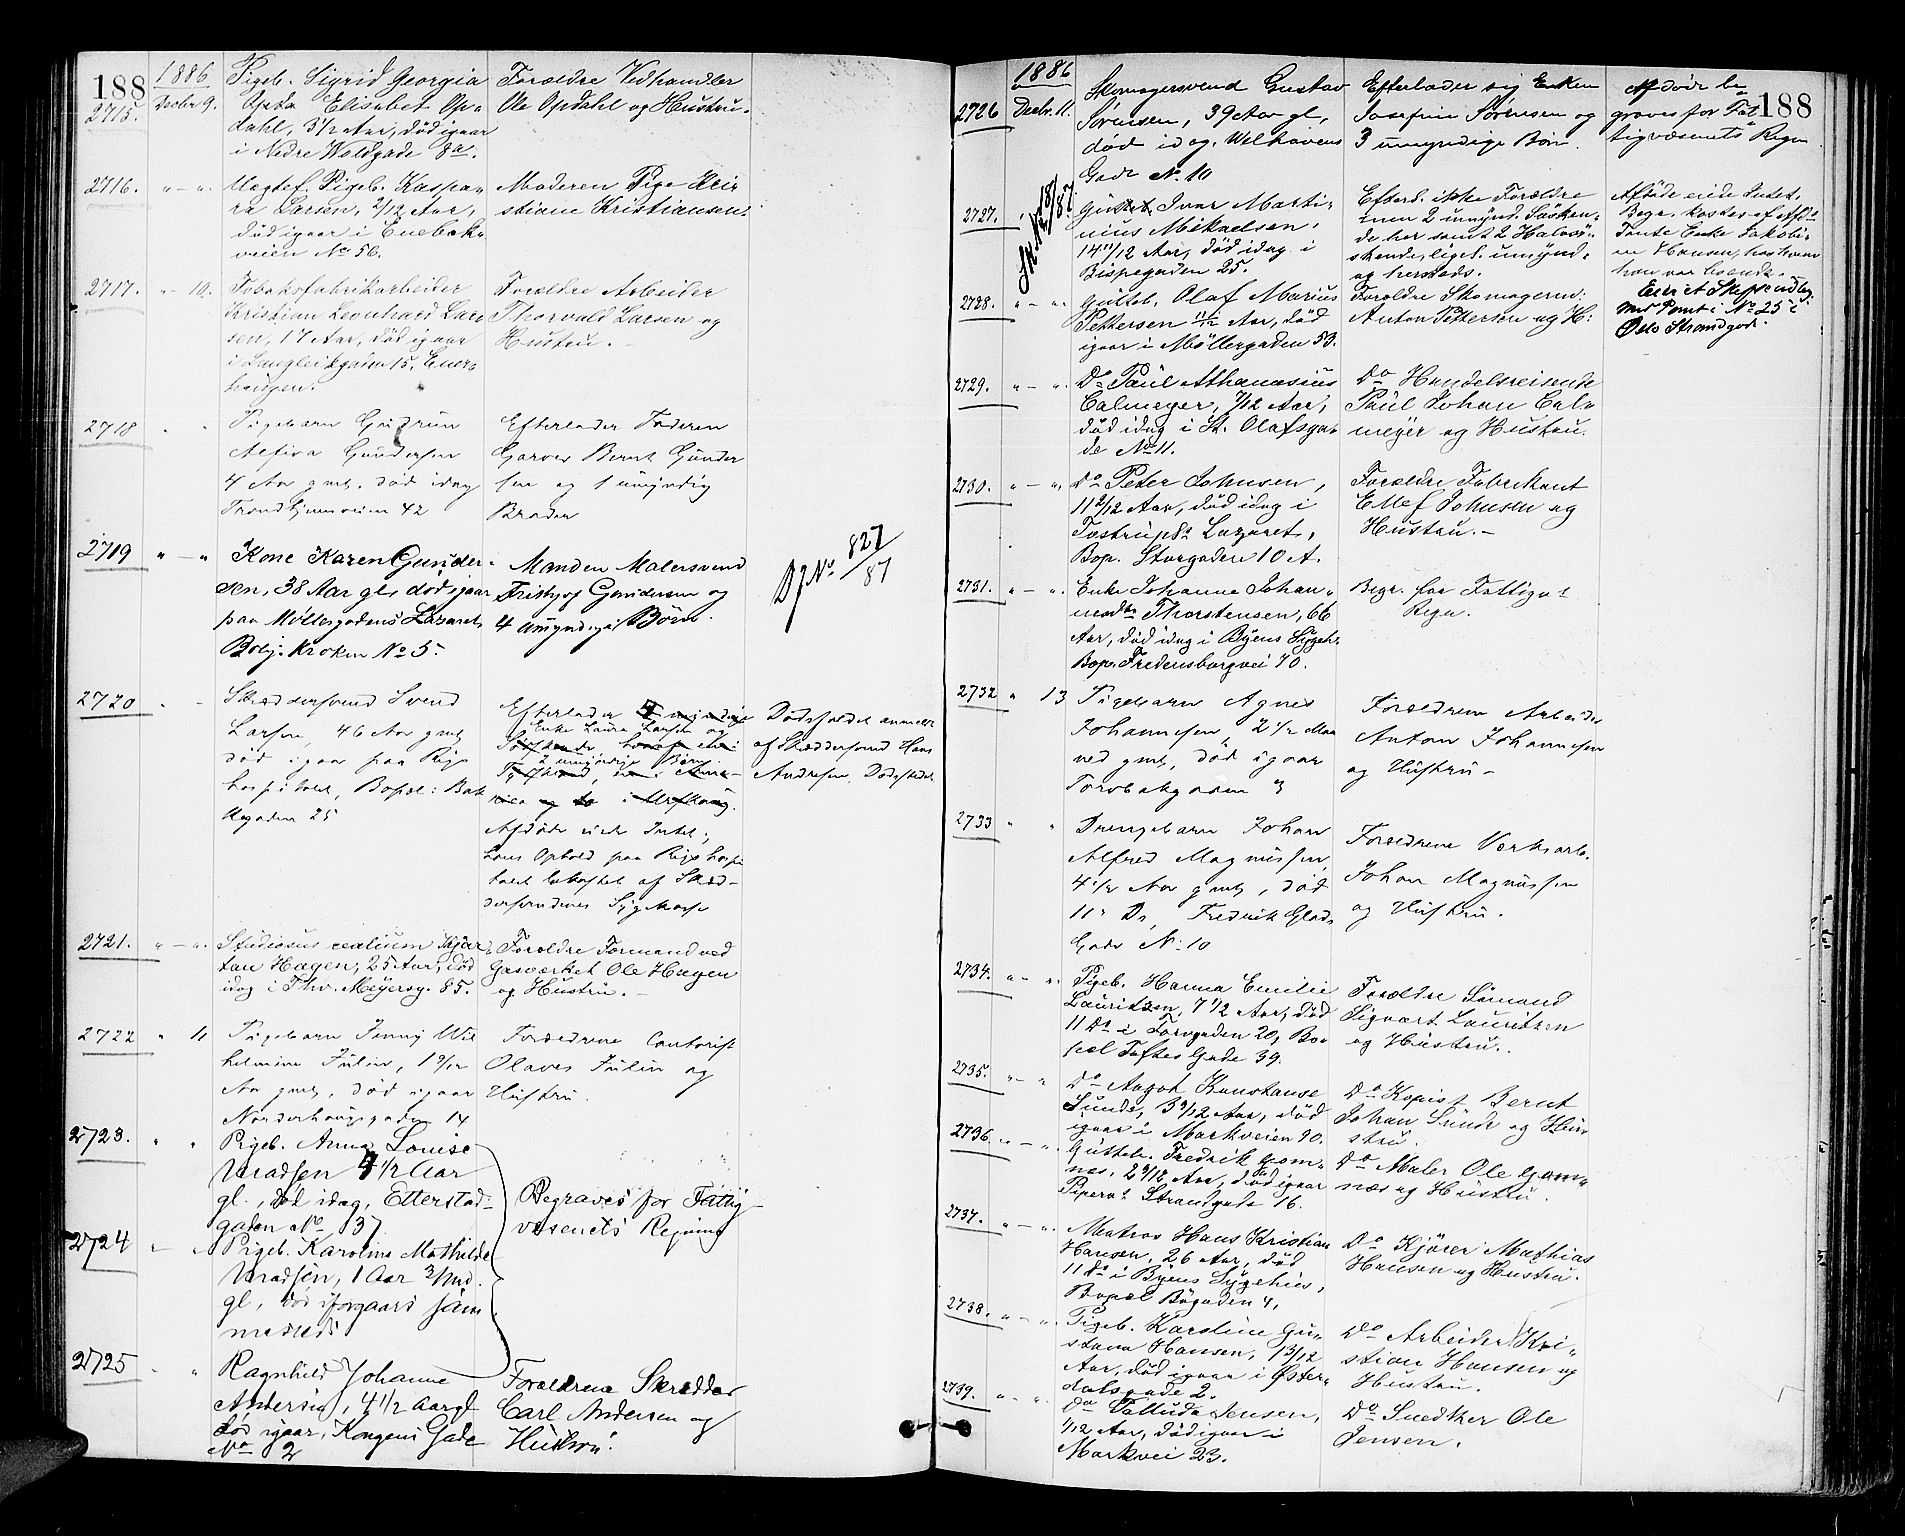 188
1886
2715. Decbr 9. Pigeb. Sigrid Georgia
Opda Elisabet Op-
dahl, 3 1/2 Aar, död igaar
i Nedre Woldgade 8a.
Forældre Vedhandler
Ole Opdahl og Hustru.
2716. " — " Uægtef. Pigeb. Kaspa-
ra Larsen, 2/12 Aar,
död igaar i Enebak-
veien No 56.
Moderen Pige Kri-
stiane Kristiansen.
2717. " — 10. Tobaksfabrikarbeider
Kristian Leonhard Lar-
sen, 17 Aar, död igaar
i Langleikgaden 15, Ener-
haugen.
Forældre Arbeider
Thorvald Larsen og
Hustru. —
2718 " " Pigebarn Gudrun
Alfiva Gundersen
4 Aar gml. död idag
Trondhjemsveien 42
Efterlader Faderen
Garver Bernt Gunder
sen og 1 umyndig
Broder
2719 " — " Kone Karen Gunder-
sen, 38 Aar gl, död igaar
paa Möllergadens Lazaret
Bolig. Kroken No 5.
Manden Malersvend
Fritjof Gundersen og
4 umyndige Börn.
Dj No. 827/87
2720 " " Skræddersvend Svend
Larsen, 46 Aar gml
död igaar paa Rigs
hospitalet, Bopæl: Bak
kegaden 25
Efterlader
Enke Laura Larsen og
2 umyndige Börn.
Afdöde eiede Intet;
hans Ophold paa Rigshospi
talet bekostet af Skræd-
dersvendenes Sygekasse
Dödsfaldet anmeldt
af Skræddersvend Hans
Andresen, Dödsstedet
2721. " — " Studiosus realium Kjar-
tan Hagen, 25 Aar, död
idag i Thv. Meyersg. 85.
Forældre Formand ved
Gasværket Ole Hagen
og Hustru. —
2722 " 11 Pigebarn Jenny Wil
helmine Julin, 1 9/12
Aar gml, död igaar
Norderhougsgaden 14
Forældrene Contorist
Olaves Julin og
Hustru.
2723. " " Pigeb. Anna Louise
Aar
gl., död idag, Etterstad-
gaden No 37
Begraves for Fattig-
væsenets Regning
2724 " " Pigeb. Karoline Mathilde
1 Aar 3/Md.
gl, död iforgaars sam
mesteds
2725 " " Ragnhild Johanne
Andersen, 4 1/2 Aar gl
död igaar, Kongens Gade
No 2
Forældrene Skrædder
Carl Andersen og
Hustru.
188
1886
2726 Decbr. 11. Skomagersvend Gustav
Sörensen, 39 Aar gl,
död idag. Welhavens
Gade No 10
Efterlader sig Enken
Josefine Sörensen og
3 umyndige Börn.
Afdöde be
graves for Fat
tigvæsenets Regn
2727. Gutteb. Ivar Marti-
nius Mikaelsen,
14 11/12 Aar, död idag i
Bispegaden 25.
Efterl. ikke Forældre
men 2 umynd. Södsken-
de her samt 2 Halvsö-
skende, liget. umynd.
og hersteds.
Afdöde eiede Intet.
Begr. kostes af Afdö
Tante Enke Jakobi-
ne Hansen, hos hvem
han var boende.
2728. " — " Gutteb. Olaf Marius
Pettersen 11/12 Aar, död
igaar i Möllergaden 53.
Forældre Skomagersv.
Anton Pettersen og H:
No 25 i
Oslo Strandgade.
2729. " — " Do Paul Athanasius
Calmeyer, 7/12 Aar,
död idag i St. Olafsga-
de No 11.
Do Handelsreisende
Paul Johan Cal-
meyer og Hustru.
2730. " — " Do Peter Johnsen,
11 2/12 Aar, död idag i
Tostrups Lazaret,
Bop. Storgaden 10 A.
Forældre Fabrikant
Ellef Johnsen og
Hustru. —
2731. " — " Enke Johanne Johan-
nesdtr Thorstensen, 66
Aar, död idag i Byens Sygeh.
Bop. Fredensborgvei 70.
Begr. for Fattigvs
Regn.
2732 " 13 Pigebarn Agnes
Johannesen, 2 1/2 Maa
ned gml, död igaar
Torvbakgaden 3
Forældrene Arbeider
Anton Johannesen
og Hustru —
2733 " " Drengebarn Johan
Alfred Magnussen,
4 1/2 Aar gml, död
11 Ds, Fredrik Glads
Gade No 10
Forældrene Verksarb.
Johan Magnussen
og Hustru.
2734. " — " Pigeb. Hanna Emilie
Lauritzen, 7 1/2 Aar, död
11 Ds i Torvgaden 20, Bo-
pæl Toftes Gade 39.
Forældre Sömand
Sigvart Lauritzen
og Hustru.
2735. " — " Do Aagot Konstanse
Sunde, 3 9/12 Aar, död
igaar i Markveien 90.
Do Kopist Bernt
Johan Sunde og Hu-
stru.
2736. " — " Gutteb. Fredrik Gom-
næs, 2 9/12 Aar, död igaar
Pipervs Strandgade 16.
Do Maler Ole Gom-
næs og Hustru.
2737. " — " Matros Hans Kristian
Hansen, 26 Aar, död
11 Ds i Byens Sygehus,
Bopæl Bögaden 4,
Do Kjörer Mathias
Hansen og Hustru.
2738. " — " Pigeb. Karoline Gu-
stava Hansen, 1 3/12
Aar, död igaar i Öster-
dalsgade 2.
Do Arbeider Kri-
stian Hansen og
Hustru.
2739. " — " Do Valluda Jensen,
1/12 Aar, död igaar i
Markvei 23.
Do Snedker Ole
Jensen.